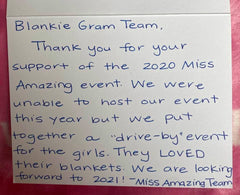 Blankie Gram Team,
Thank you for your
support of the 2020 Miss
Amazing event. We were
unable to host our event
this year but we put
together a "drive-by" event
for the girls. They LOVED
their blankets. We are looking
forward to 2021! ~Miss Amazing Team